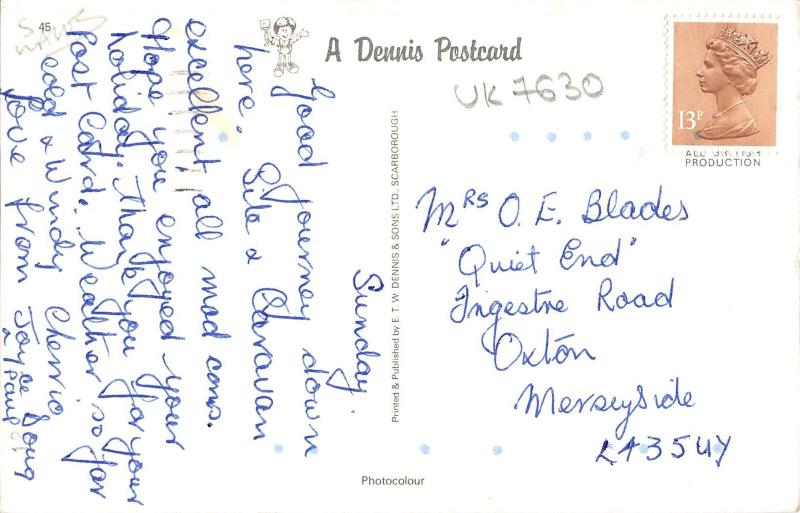 45
A Dennis Postcard
UK 7630
13P
ALL BRITISH
PRODUCTION
Sunday.
Good Journey down
here. Site & Caravan
excellent, all mod cons.
Hope you enjoyed your
holiday. Thank you for your
Post Card. Weather so far
cold & Windy Cheerio
Love from Joyce Doug
& Paul
Printed & Published by E. T. W. DENNIS & SONS LTD. SCARBOROUGH
Mrs O. E. Blades
"Quiet End"
Ingestre Road
Oxton
Merseyside
L43 5UY
Photocolour